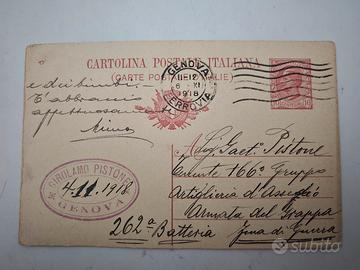 CARTOLINA POSTALE ITALIANA
(CARTE POSTALE D'ITALIE)
GENOVA
11E12
6 XI
1918
FERROVIA
e dei bimbi
t'abbraccio
affettuosamente
Mimo
GIROLAMO PISTONE
4 11 1918
GENOVA
Sig. Gaet. Pistone
Tenente 166° Gruppo
Artiglieria d'Assedio
Armata del Grappa
262a Batteria Zona di Guerra
subito